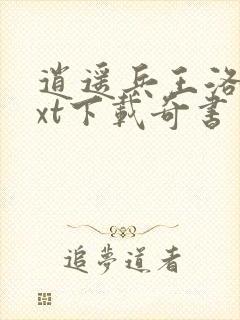 逍遥兵王洛
xt下載奇書
追夢道者